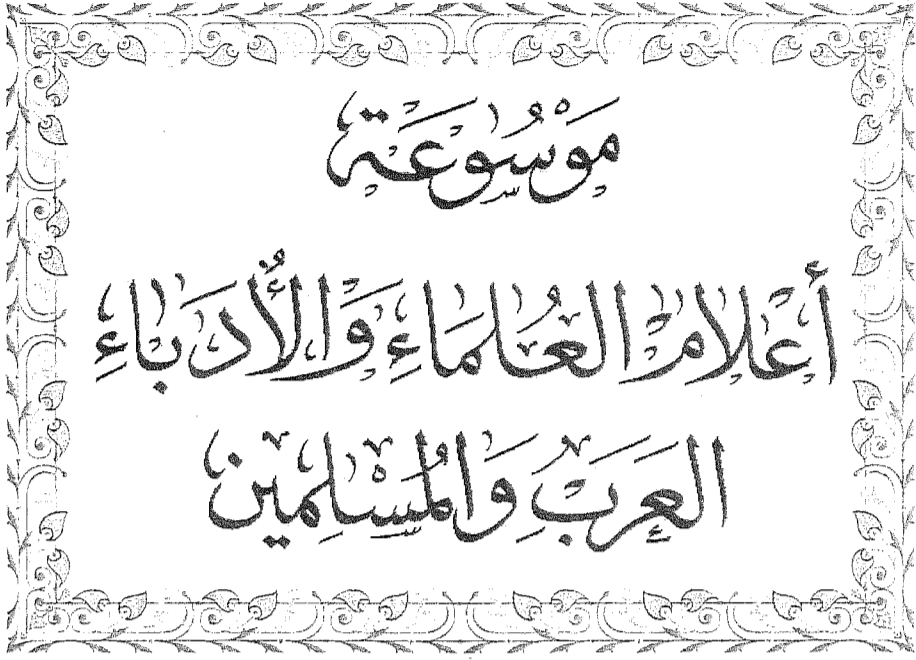 مَوْسُوعَة
أَعْلَامِ العُلَمَاءِ وَالأُدَبَاءِ
العَرَبِ وَالمُسْلِمِين